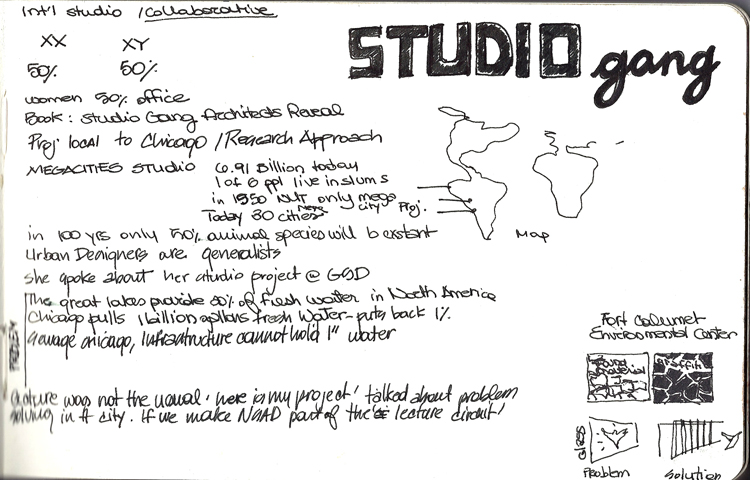 Int'l studio / Collaborative
STUDIO gang
XX XY
50% 50%
women 50% office
Book: Studio Gang Architects Reveal
Proj local to Chicago / Research Approach
MEGACITIES Studio 6.91 Billion today
1 of 6 ppl live in slums
in 1950 NY only mega city
Today 30 cities mega
Proj.
Map
in 100 yrs only 50% animal species will b extant
Urban Designers are generalists
She spoke about her studio project @ GSD
The great lakes provide 80% of fresh water in North America
Chicago pulls 1 billion gallons fresh water - puts back 1%
Sewage chicago, Infrastructure cannot hold 1" water
was not the usual 'here is my project' talked about problem
solving in A city. If we make NSAD part of the lecture circuit!
Fort Calumet
Environmental Center
found material
graffiti
glass
Problem
Solution